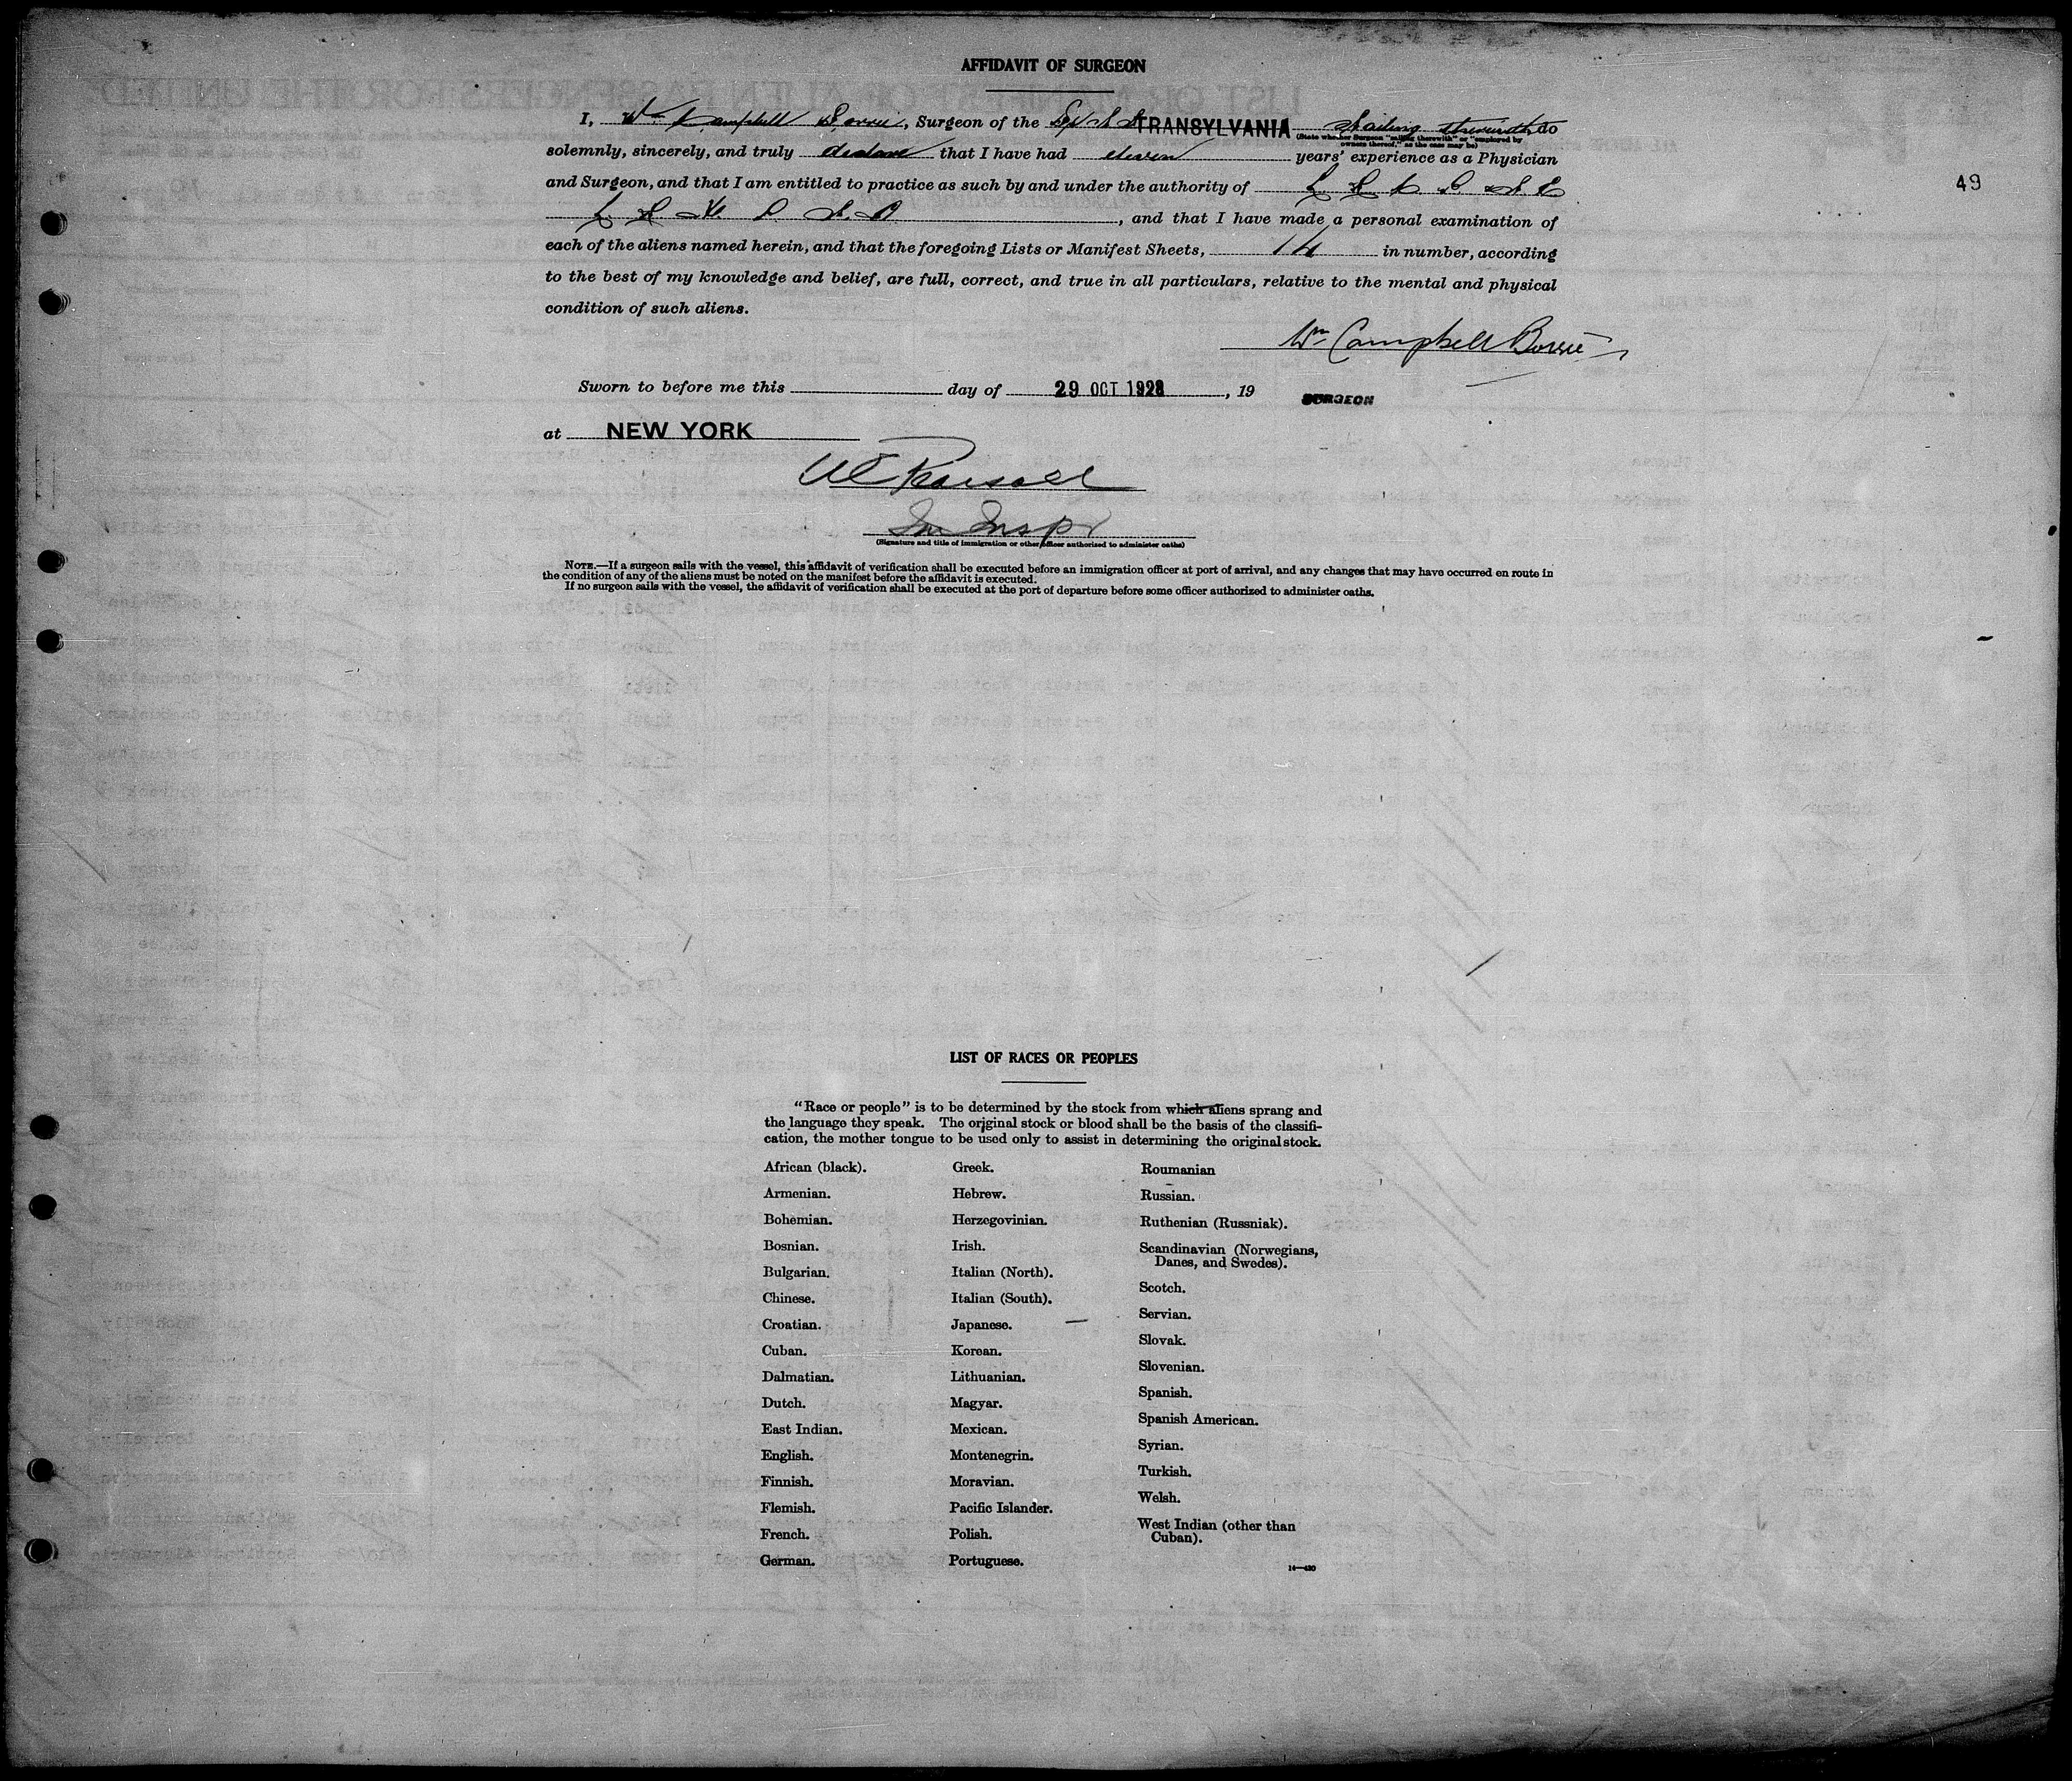 AFFIDAVIT OF SURGEON
I, Wm Campbell Borrie, Surgeon of the TRANSYLVANIA Sailing therewith do
(State whether Surgeon "sailing therewith" or "employed by
owners thereof," as the case may be)
solemnly, sincerely, and truly declare that I have had eleven years' experience as a Physician
49
and Surgeon, and that I am entitled to practice as such by and under the authority of L R C P S E
, and that I have made a personal examination of
each of the aliens named herein, and that the foregoing Lists or Manifest Sheets, 14 in number, according
to the best of my knowledge and belief, are full, correct, and true in all particulars, relative to the mental and physical
condition of such aliens.
Wm Campbell Borrie
Sworn to before me this day of 29 OCT 1928, 19
SURGEON
at NEW YORK
Im Inspr
(Signature and title of immigration or other officer authorized to administer oaths)
NOTE.—If a surgeon sails with the vessel, this affidavit of verification shall be executed before an immigration officer at port of arrival, and any changes that may have occurred en route in
the condition of any of the aliens must be noted on the manifest before the affidavit is executed.
If no surgeon sails with the vessel, the affidavit of verification shall be executed at the port of departure before some officer authorized to administer oaths.
LIST OF RACES OR PEOPLES
"Race or people" is to be determined by the stock from which aliens sprang and
the language they speak. The original stock or blood shall be the basis of the classifi-
cation, the mother tongue to be used only to assist in determining the original stock.
African (black).
Armenian.
Bohemian.
Bosnian.
Bulgarian.
Chinese.
Croatian.
Cuban.
Dalmatian.
Dutch.
East Indian.
English.
Finnish.
Flemish.
French.
German.
Greek.
Hebrew.
Herzegovinian.
Irish.
Italian (North).
Italian (South).
Japanese.
Korean.
Lithuanian.
Magyar.
Mexican.
Montenegrin.
Moravian.
Pacific Islander.
Polish.
Portuguese.
Roumanian
Russian.
Ruthenian (Russniak).
Scandinavian (Norwegians,
Danes, and Swedes).
Scotch.
Servian.
Slovak.
Slovenian.
Spanish.
Spanish American.
Syrian.
Turkish.
Welsh.
West Indian (other than
Cuban).
14—430